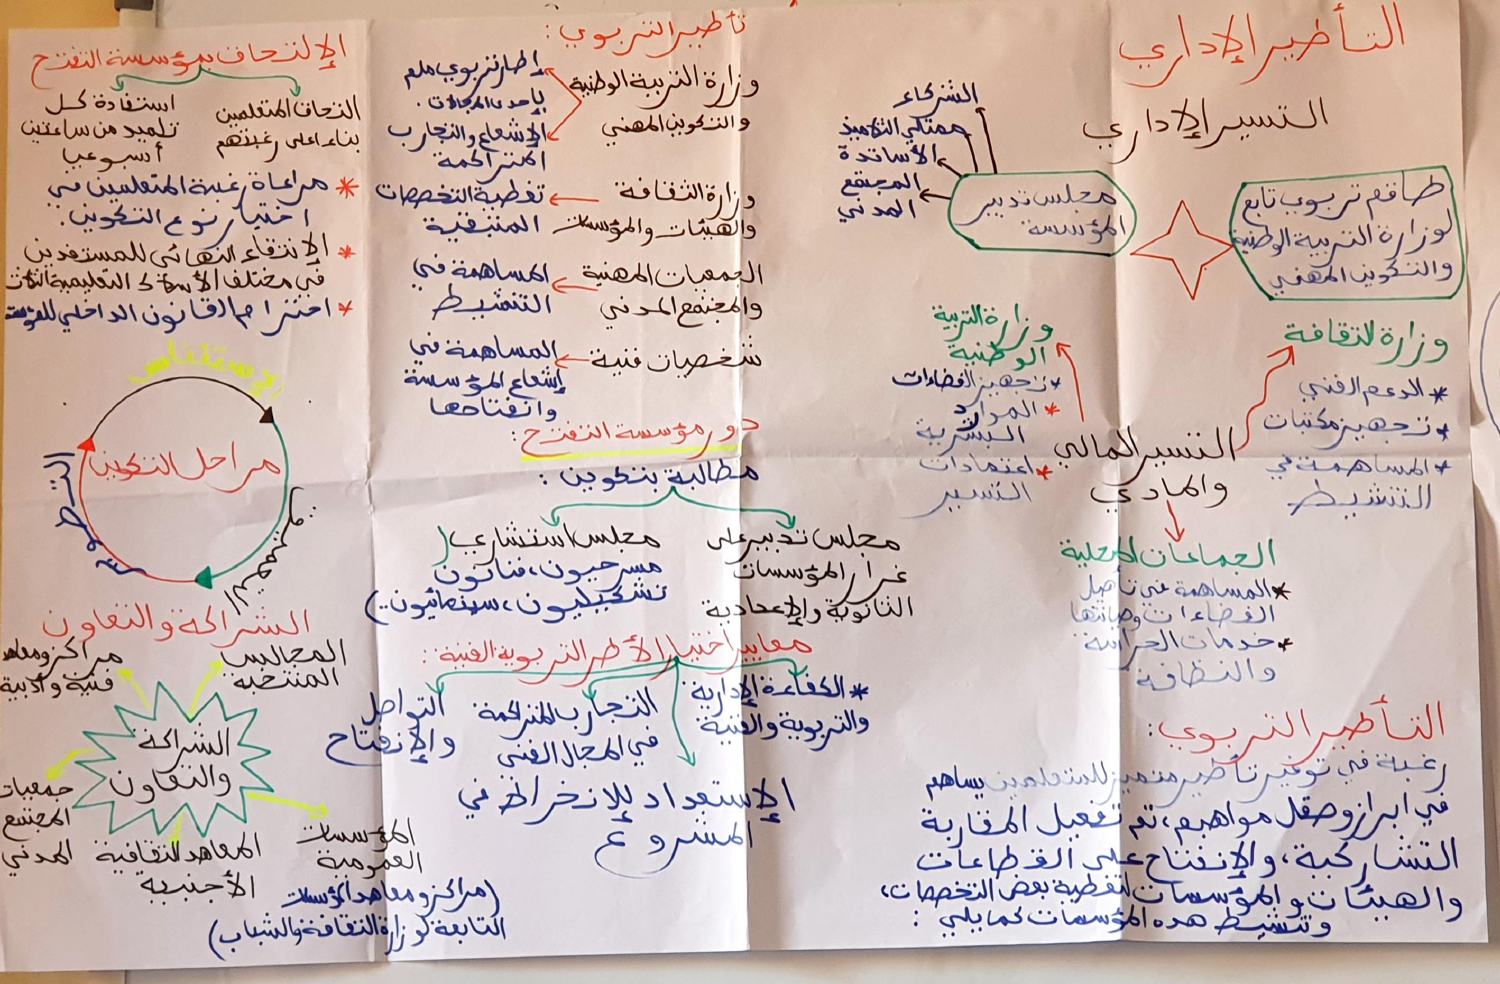 التأطير الإداري
التسيير الإداري
طاقم تربوي تابع
لوزارة التربية الوطنية
والتكوين المهني
مجلس تدبير
المؤسسة
الشركاء
ممثلي التلاميذ
الأساتذة
المجتمع
المدني
التسيير المالي
والمادي
وزارة الثقافة
* الدعم الفني
* تجهيز مكتبات
* المساهمة في
التنشيط
وزارة التربية
الوطنية
* تجهيز الفضاءات
* الموارد
البشرية
* اعتمادات
التسيير
الجماعات المحلية
* المساهمة في تأهيل
الفضاءات وصيانتها
* خدمات الحراسة
والنظافة
التأطير التربوي:
رغبة في توفير تأطير متميز للمتعلمين يساهم
في ابراز وصقل مواهبهم، تم تفعيل المقاربة
التشاركية، والإنفتاح على القطاعات
والهيئات والمؤسسات لتغطية بعض التخصصات،
وتنشيط هذه المؤسسات كما يلي:
تأطير التربوي:
وزارة التربية الوطنية
والتكوين المهني
إطار تربوي ملم
بإحدى المجالات.
الإشعاع والتجارب
المتراكمة
وزارة الثقافة
والهيئات والمؤسسات
تغطية التخصصات
المتبقية
الجمعيات المهنية
والمجتمع المدني
المساهمة في
التنشيط
شخصيات فنية
المساهمة في
إشعاع المؤسسة
وانفتاحها
دور مؤسسة التفتح:
مطالبة بتكوين:
مجلس تدبير على
غرار المؤسسات
الثانوية والإعدادية
مجلس استشاري (
مسرحيون، فنانون
تشكيليون، سينمائيون..)
معايير اختيار الأطر التربوية الفنية:
* الكفاءة الإدارية
والتربوية والفنية
التجارب المتراكمة
في المجال الفني
التواصل
والإنفتاح
الإستعداد للإنخراط في
المشروع
الإلتحاق بمؤسسة التفتح
التحاق المتعلمين
بناء على رغبتهم
استفادة كل
تلميذ من ساعتين
أسبوعيا
* مراعاة رغبة المتعلمين في
اختيار نوع التكوين.
* الإنتقاء النهائي للمستفدين
في مختلف الأسلاك التعليمية الثلاث
* احترام القانون الداخلي للمؤسسة
مراحل التكوين
الإستئناس
التعميق
التطوير
الشراكة والتعاون
الشراكة
والتعاون
المجالس
المنتخبة
مراكز ومعاهد
فنية وأدبية
جمعيات
المجتمع
المدني
المعاهد الثقافية
الأجنبية
المؤسسات
العمومية
(مراكز ومعاهد المؤسسات
التابعة لوزارة الثقافة والشباب)